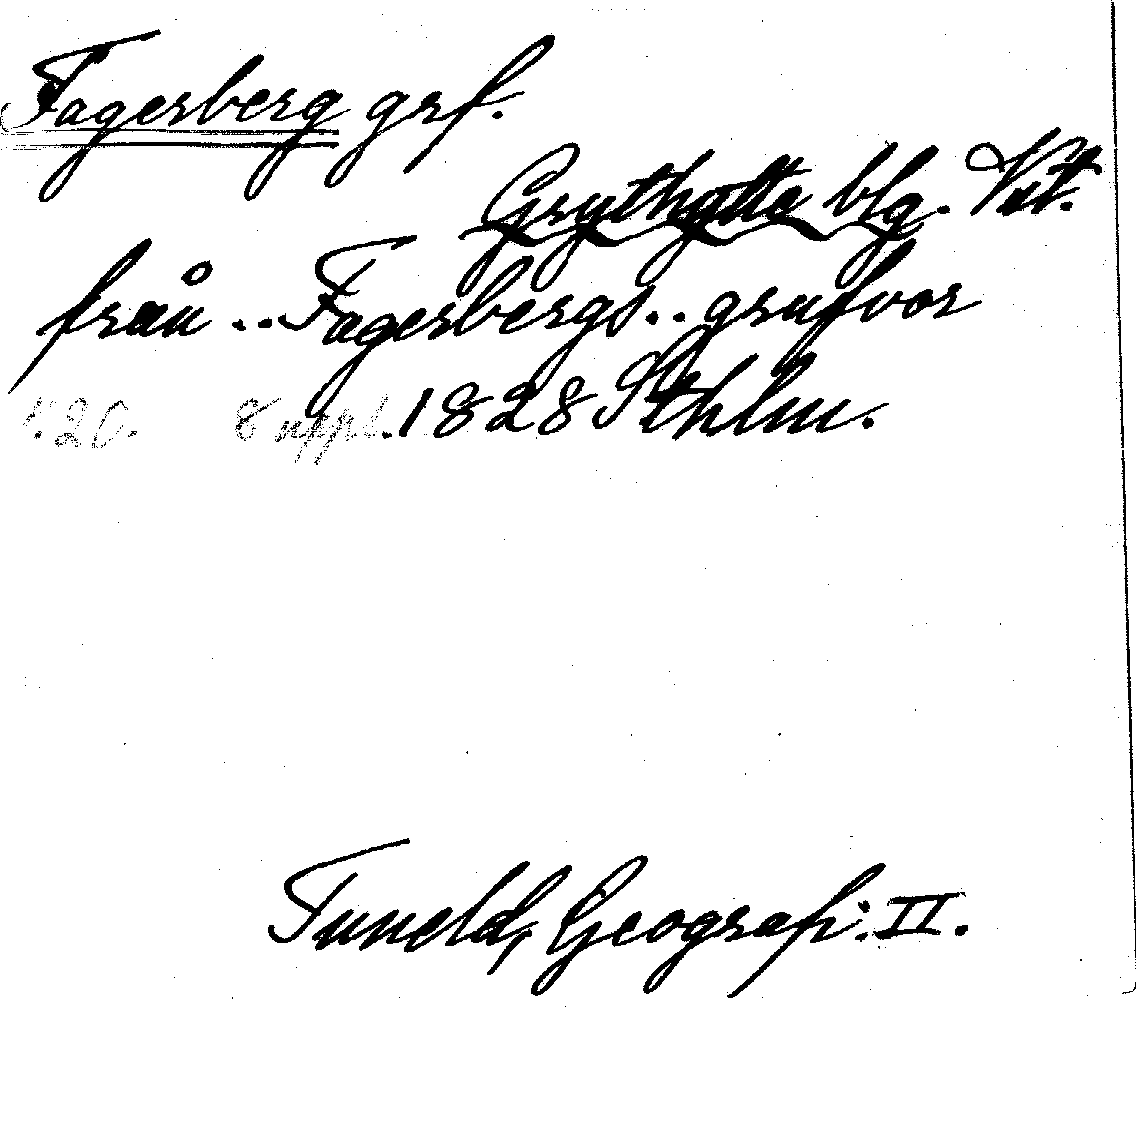 Fagerberg grf.
Grythytte blg. Vst.
från .. Fagerbergs .. grufvor
s. 20. 8 uppl. 1828 Sthlm.
Tuneld, Geografi: II.